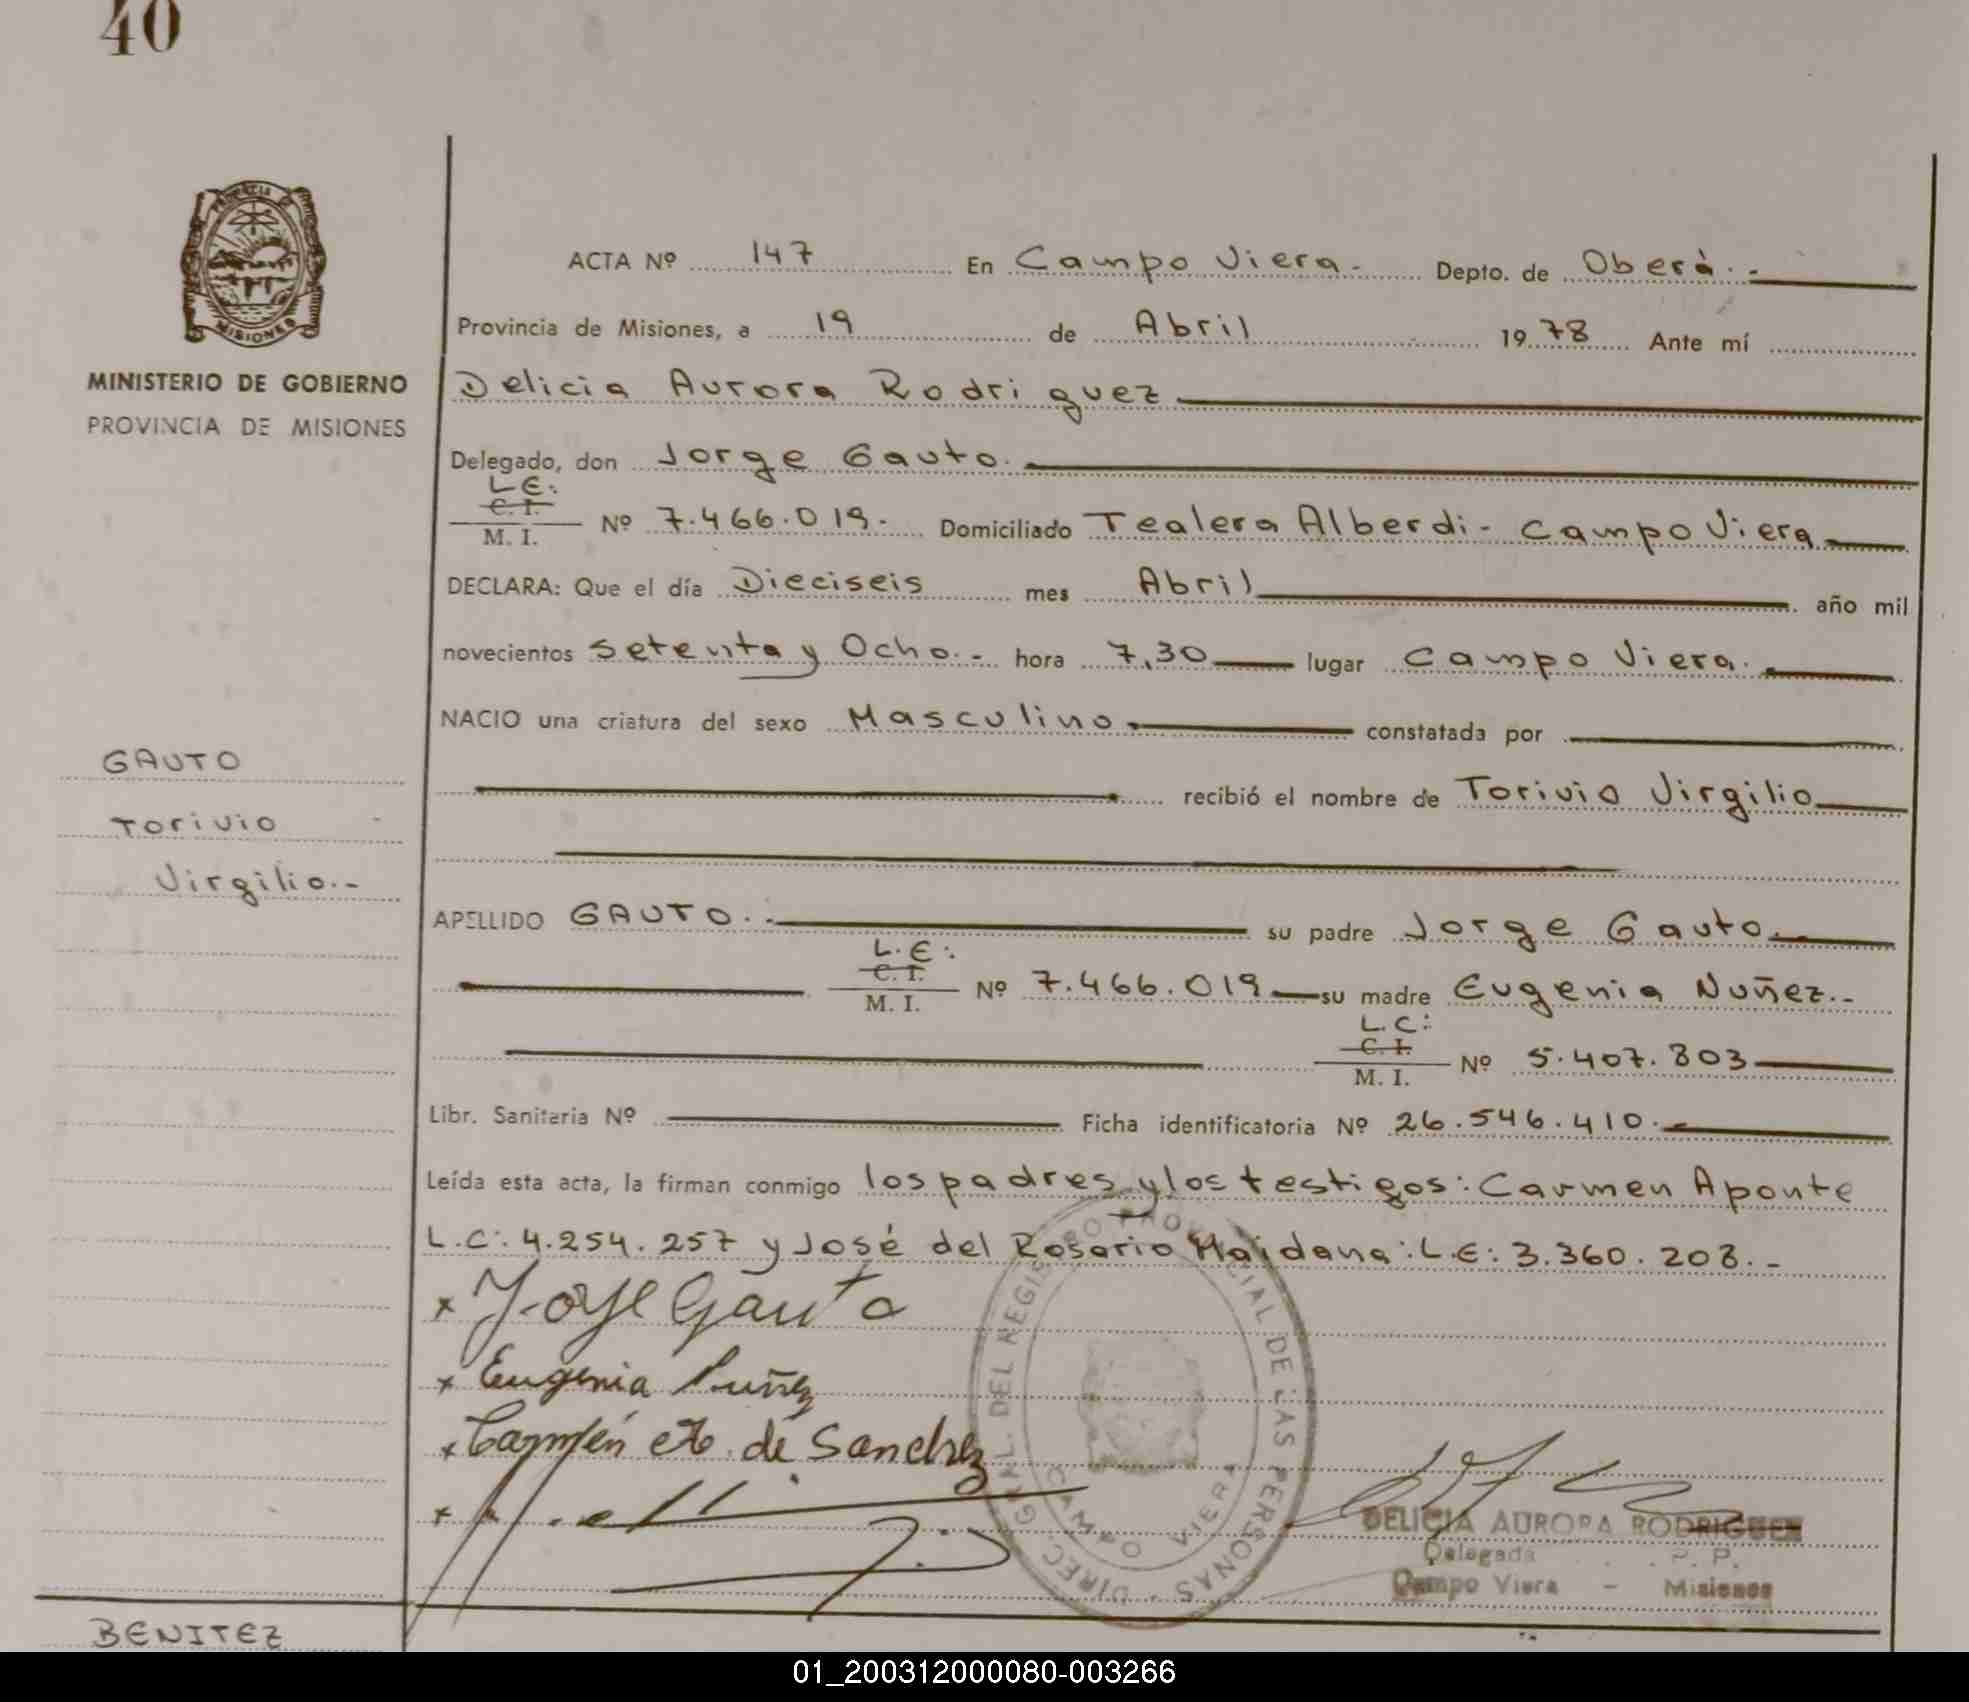 40
PROVINCIA DE
MISIONES
MINISTERIO DE GOBIERNO
PROVINCIA DE MISIONES
GAUTO
Torivio
Virgilio.-
ACTA Nº 147 En Campo Viera. Depto. de Oberá.-
Provincia de Misiones, a 19 de Abril 1978 Ante mí
Delicia Aurora Rodriguez
Delegado, don Jorge Gauto.
L.E:
C. I.
M. I.
Nº 7.466.019. Domiciliado Tealera Alberdi- Campo Viera
DECLARA: Que el día Dieciseis mes Abril año mil
novecientos Setenta y Ocho.- hora 7,30 lugar Campo Viera.
NACIO una criatura del sexo Masculino. constatada por
recibió el nombre de Torivio Virgilio
APELLIDO GAUTO.- su padre Jorge Gauto.
L.E:
C. I.
M. I.
Nº 7.466.019 su madre Eugenia Nuñez.-
L.C:
C. I.
M. I.
Nº 5.407.803
Libr. Sanitaria Nº Ficha identificatoria Nº 26.546.410.
Leída esta acta, la firman conmigo los padres y los testigos: Carmen Aponte
L.C: 4.254.257 y José del Rosario Maidana: L.E: 3.360.208.-
x Jorge Gauto
x Eugenia Nuñez
x Carmen A. de Sanchez
x
DIREC. GRAL. DEL REGISTRO PROVINCIAL DE LAS PERSONAS -
CAMPO VIERA
DELICIA AURORA RODRIGUEZ
Delegada P. P.
Campo Viera - Misiones
BENITEZ
01_200312000080-003266